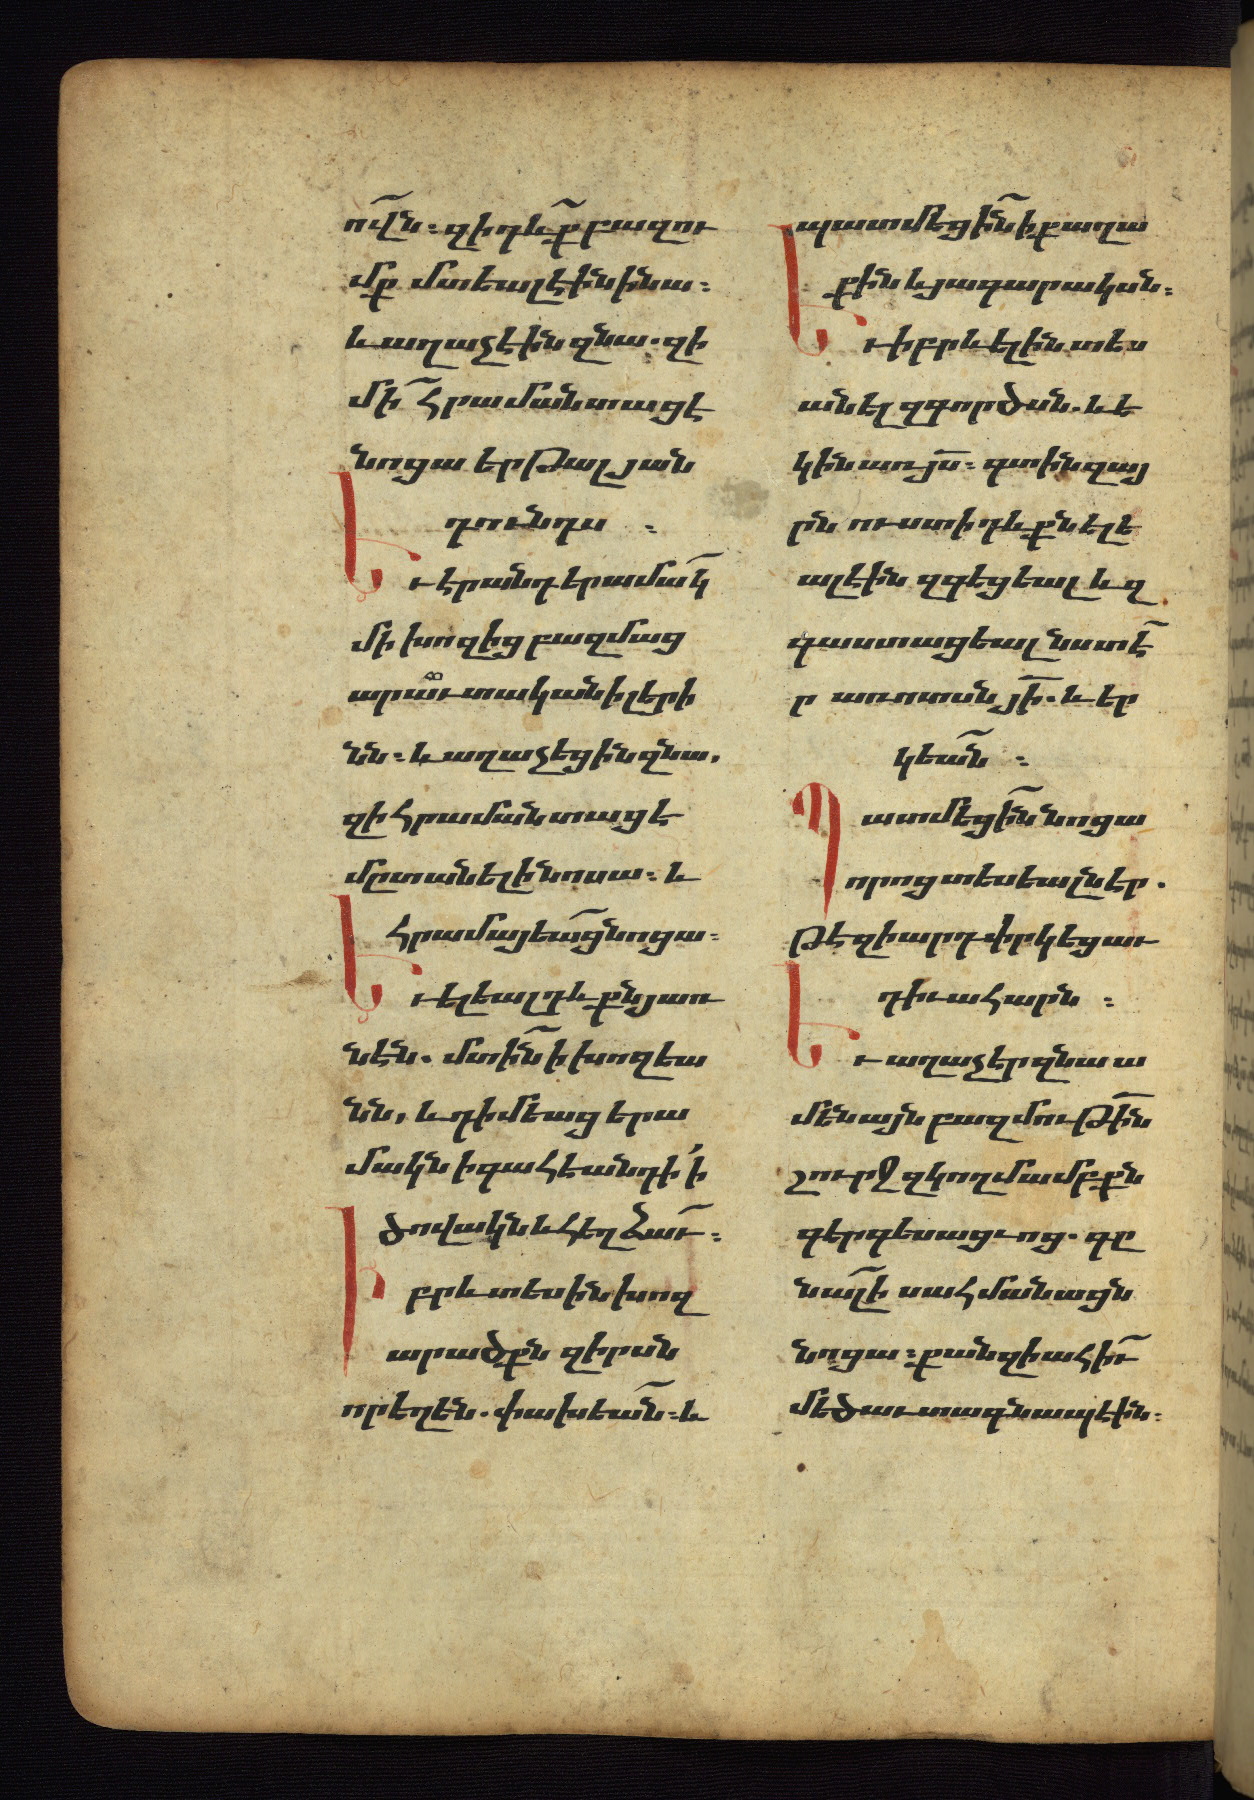 ովն։ զի դևք բազու
մք մտեալ էին ի նա։
և աղաչէին զնա. զի
մի հրաման տացէ
նոցա երթալ յան
դունդս ։
Եւ էր անդ երամակ
մի խոզից բազմաց
արաւտական ի լերի
նն։ և աղաչեցին զնա,
զի հրաման տացէ
մըտանել ի նոսա։ և
հրամայեաց նոցա։
Եւ ելեալ դևքն յառ
նէն. մտին ի խոզեա
նն, և դիմեաց երա
մակն ի գահէ անդի՛ ի
ծովակն և հեղձաւ։
Իբրև տեսին խոզ
արածքն զիրսն
որ եղեն. փախեան։ և
պատմեցին ի քաղա
քին և յագարակսն։
Եւ իբրև ելին տես
անել զգործսն. և ե
կին առ յս̃։ գտին զայ
րն ուստի դևքն ելե
ալ էին զգեցեալ և զ
գաստացեալ նստէ
ր առ ոտսն յի̃. և եր
կեան ։
Պատմեցին նոցա
որոց տեսեալն էր.
թէ զիարդ փրկեցաւ
դիւահարն ։
Եւ աղաչէր զնա ա
մենայն բազմութի̃ն
շուրջ զկողմամբքն
գերգեսացւոց. գը
նալ ի սահմանացն
նոցա։ քանզի ահիւ
մեծաւ տագնապէին։